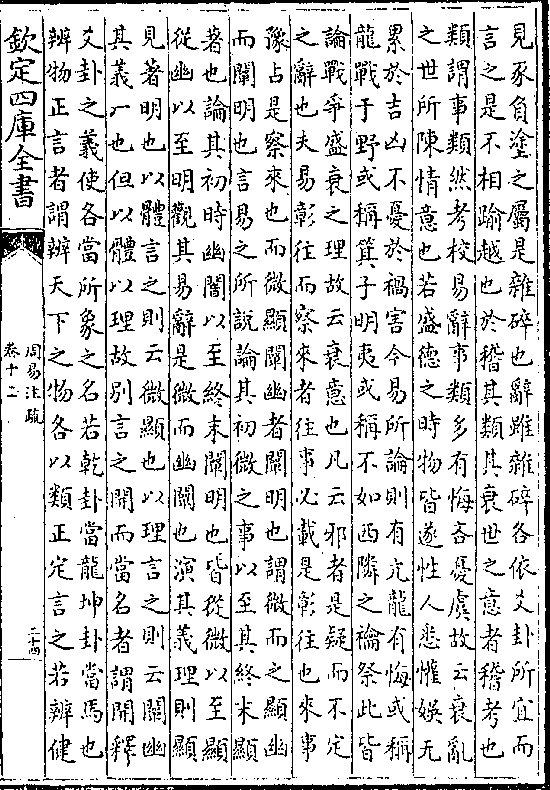 見豕負塗之屬是雜碎也辭雖雜碎各依爻卦所宜而
言之是不相踰越也於稽其類其衰世之意者稽考也
類謂事類然考校易辭事類多有悔吝憂虞故云衰亂
之世所陳情意也若盛德之時物皆遂性人悉懽娛无
累於吉凶不憂於禍害今易所論則有亢龍有悔或稱
龍戰于野或稱箕子明夷或稱不如西隣之禴祭此皆
論戰爭盛衰之理故云衰意也凡云邪者是疑而不定
之辭也夫易彰往而察來者往事必載是彰往也來事
豫占是察來也而微顯闡幽者闡明也謂微而之顯幽
而闡明也言易之所說論其初微之事以至其終末顯
著也論其初時幽闇以至終末闡明也皆從微以至顯
從幽以至明觀其易辭是微而幽闇也演其義理則顯
見著明也以體言之則云微顯也以理言之則云闡幽
其義一也但以體以理故別言之開而當名者謂開釋
爻卦之義使各當所象之名若乾卦當龍坤卦當馬也
辨物正言者謂辨天下之物各以類正定言之若辨健
欽定四庫全書
周易注疏
卷十二
二十四